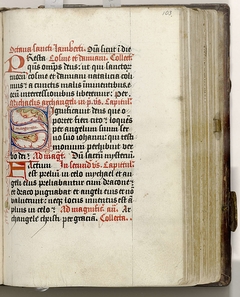 103.
Octava sancti lamberti. Dum sint i die
Festa Cosme et damiani. Collecta
Presta quis omps deus: ut qui sanctor
cosme et damiani natalicia coli
mus: a cunctis malis imminentibus e
intercessionibus liberemur: Per.
Michaelis archangeli in p. vs. Capitulum
Significavit deus que o
portet fieri cito et loques
per angelum suum ser
vo suo iohanni: qui testi
monium perhibuit ver
bo dei: Ad magt. Dum sacrum mysterium
Factum In secundis vs. Capitulum
est prelium in celo mychael et an
geli eius preliabantur cum deacone et
et draco pugnabat et angeli eius et no
valuerunt: neque locus inventus est a
plius in celo: Ad magnificat. an. Ar
changele christi per graciam. Collecta.